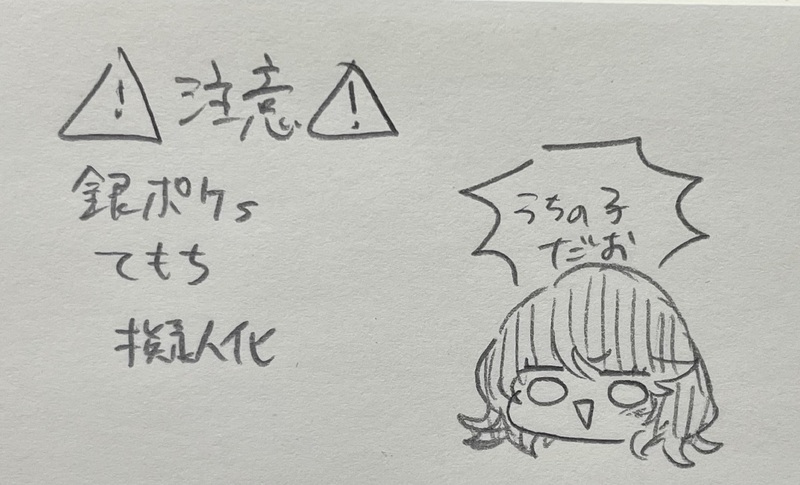 ⚠注意⚠
銀ポケs
てもち
擬人化
うちの子
だお